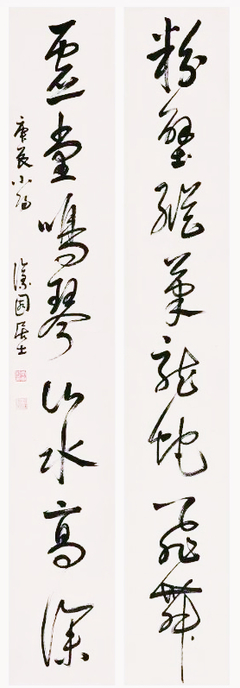 粉壁縱筆龍蛇飛舞
虛堂鳴琴山水高深
庚辰小 居士